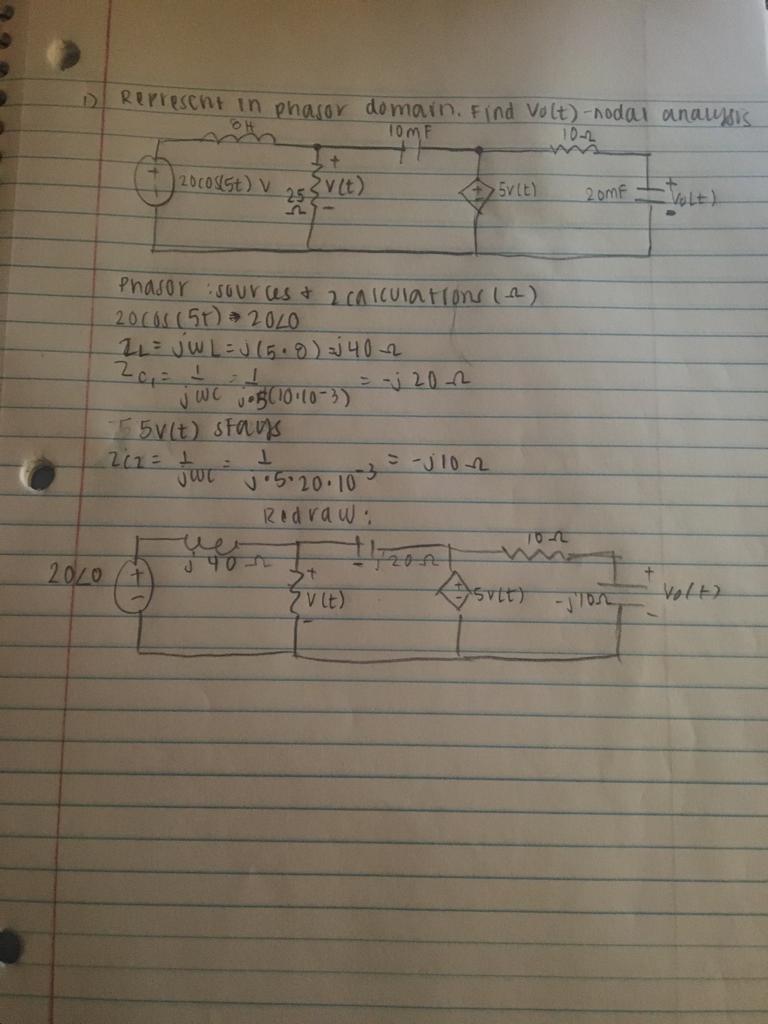 1) Represent in phasor domain. Find Vo(t) - nodal analysis
8H 10mF 10Ω
+
20cos(5t) V
25
Ω
+
V(t)
-
+
-
5v(t)
20mF
+
Vo(t)
-
Phasor : sources + Z calculations (Ω)
20cos(5t) → 20∠0
ZL = jωL = j(5·8) = j40Ω
Zc1 = 1/jωC = 1/j·5(10·10-3) = -j20Ω
5v(t) stays
Zc2 = 1/jωC = 1/j·5·20·10^-3 = -j10Ω
Redraw:
j40Ω -j20Ω 10Ω
20∠0
+
-
+
V(t)
-
+
-
5v(t)
-j10Ω
+
Vo(t)
-